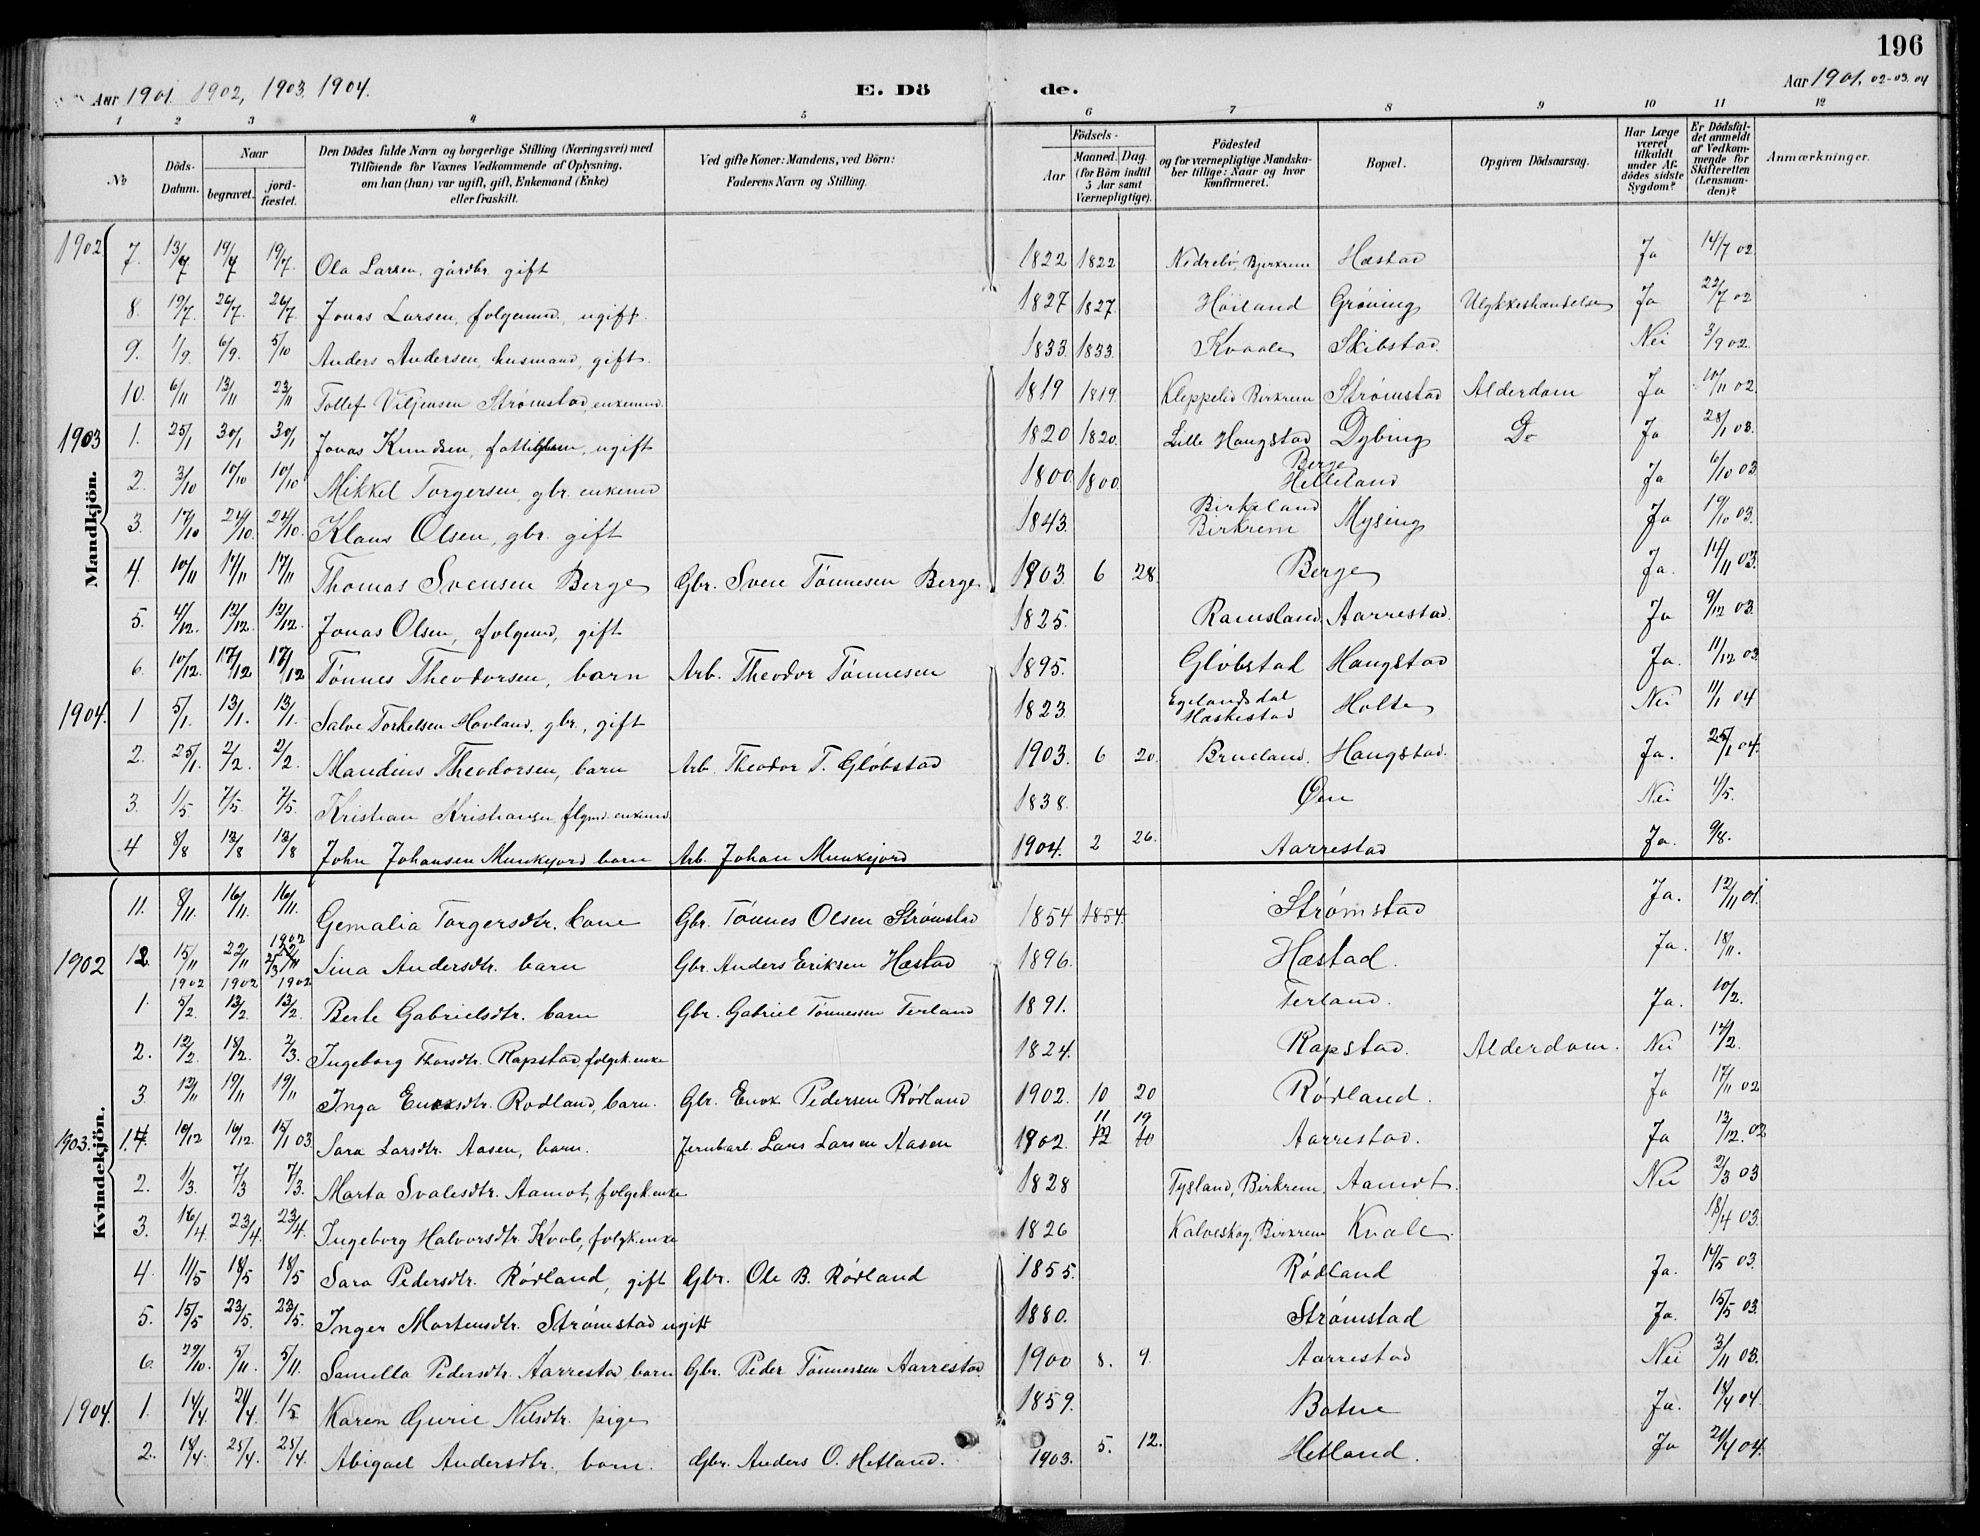 196
Aar 1901. 1902, 1903. 1904. E. Dö de. Aar 1901. 02-03. 04
1 2 3 4 5 6 7 8 9 10 11 12
No Döds-Datum. Naar begravet. jord-fæstet. Den Dödes fulde Navn og borgerlige Stilling (Næringsvei) med Tilföiende for Voxnes Vedkommende af Oplysning, om han (hun) var ugift, gift, Enkemand (Enke) eller fraskilt. Ved gifte Koner: Mandens, ved Börn: Faderens Navn og Stilling. Födsels- Aar Maaned. Dag. (for Börn indtil 5 Aar samt Værnepligtige). Födested og for værnepligtige Mandska-ber tillige: Naar og hvor konfirmeret. Bopæl. Opgiven Dödsaarsag. Har Læge været tilkaldt under Af-dödes sidste Sygdom? Er Dödsfal-det anmeldt af Vedkom-mende for Skifteretten (Lensman-den)? Anmærkninger.
Mandkjön.
1902 7. 13/7 19/7 19/7. Ola Larsen, gårdbr. gift 1822 1822 Nedrebö, Bjerkrem Hæstad Ja 14/7 02
8. 19/7. 26/7. 26/7. Jonas Larsen, folgemd, ugift. 1827 1827. Höiland Gröning Ulykkeshændelse Ja 22/7 02
9. 1/9. 6/9. 5/10 Anders Andersen, husmand, gift. 1833. 1833. Kvaale Skibstad. Nei 3/9 02.
10. 6/11 13/11 23/11 Tollef Viljemsen Strømstad, enkemd. 1819 1819. Kleppelid Birkrem Strømstad Alderdom Ja 10/11 02.
1903 1. 25/1 30/1 30/1 Jonas Knudsen, ugift 1820 1820. Lille Haugstad Dybing Do Ja 28/1 03.
2. 3/10 10/10 10/10 Mikkel Torgersen, gbr. enkemd 1800. 1800. Berge Helleland Ja 6/10 03.
3. 17/10 24/10. 24/10. Klaus Olsen, gbr. gift 1843. Birkeland Birkrem Mysing Ja 19/10 03.
4. 10/11 17/11 17/11 Thomas Svensen Berge Gbr. Sven Tönnesen Berge. 1903 6 28. Berge Ja. 14/11 03.
5. 4/12. 12/12. 12/12. Jonas Olsen, folgemd, gift 1825. Ramsland. Aarrestad. Ja 9/12 03.
6. 10/12. 17/12 17/12 Tönnes Theodorsen, barn Arb. Theodor Tönnesen 1895. Glöbstad Haugstad Ja. 11/12 03.
1904. 1 5/1. 13/1. 13/1. Salve Torkelsen Hovland, gbr., gift 1823. Egelandsdal Hæskestad Holte Nei 11/1 04
2. 25/1. 2/2. 2/2. Maudius Theodorsen, barn Arb. Theodor T. Glöbstad 1903. 6 20. Brueland. Haugstad. Ja. 25/1 04.
3. 1/5 7/5. 7/5. Kristian Kristiansen flgmd. enkemd 1838. Øen Nei 1/5.
4 8/8 13/8 13/8 John Johansen Munkejord barn Arb. Johan Munkejord 1904. 2 26. Aarrestad Ja. 9/8.
Kvindekjön.
11. 8/11. 16/11. 16/11. Gemalia Torgersdtr. kone Gbr. Tönnes Olsen Strømstad 1854 1854. Strømstad Ja. 12/11 01.
1902 12. 15/11 22/11 1902 2/3 Sina Andersdtr. barn Gbr. Anders Eriksen Hæstad 1896. Hæstad. Ja. 18/11.
1902 1902 1902
1. 5/2. 13/2. 13/2. Berte Gabrielsdtr. barn Gbr. Gabriel Tönnessen Terland 1891. Terland. Ja. 10/2.
2. 12/2. 18/2. 2/3. Ingeborg Thorsdtr. Rapstad, folgek. enke 1824. Rapstad. Alderdom. Nei 14/2.
3 13/11 19/11 19/11 Inga Enoksdtr. Rødland, barn. Gbr. Enok Pedersen Rödland 1902. 10 20 Rødland. Ja 17/11 02
1903. 1. 4. 10/12 16/12. 15/1 03. Sara Larsdtr. Aasen, barn. Jernbarb. Lars Larsen Aasen 1902. 11 12 19 10 Aarrestad. Ja 13/12. 02
2. 1/3. 7/3 7/3. Marta Svalesdtr. Aamot, folgek. enke 1828 Tysland, Birkrem. Aamot. Nei 2/3 03
3. 16/4. 23/4. 23/4. Ingeborg Halvorsdtr. Kvale, folgk. enke 1826 Kalveskog, Birkrem Kvale. 18/4 03.
4. 11/5 18/5 18/5 Sara Pedersdtr. Rödland, gift Gbr. Ole B. Rödland 1855. Rødland Ja. 14/5 03.
5. 15/5 23/5. 23/5. Inger Martensdtr. Strømstad ugift 1880. Strømstad Ja. 15/5 03.
6. 29/10. 5/11. 5/11. Samella Pedersdtr. Aarrestad, barn Gbr. Peder Tönnessen Aarrestad. 1900 8. 9. Aarrestad Nei 3/11 03.
1904. 1. 14/4. 21/4. 1/5 Karen Gurie Nilsdtr. pige 1859. Botne Ja. 18/4 04.
2. 18/4. 25/4. 25/4. Abigael Andersdtr. barn. Gbr. Anders O. Hetland. 1903. 5. 12. Hetland. Ja 21/4 04.